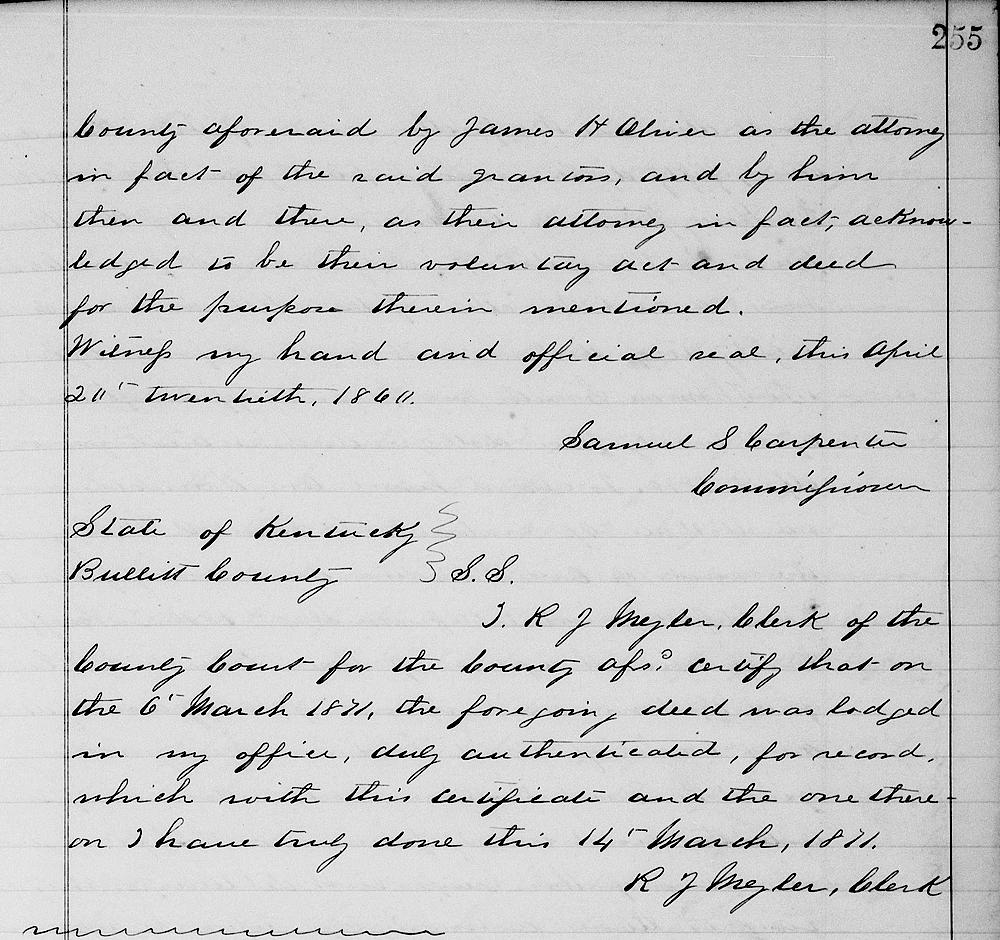 255
County aforesaid by James H Oliver as the attorney
in fact of the said grantors, and by him
then and there, as their attorney in fact, acknow-
ledged to be their voluntay act and deed
for the purpose therein mentioned.
Witness my hand and official seal, this April
20" twentieth, 1860.
Samuel S Carpenter
Commissioner
State of Kentucky }
Bullitt County } S.S.
I. R J Meyler, Clerk of the
County Court for the County afsd certify that on
the 6" March 1871, the foregoing deed was lodged
in my office, duly authenticated, for record,
which with this certificate and the one there-
on I have truly done this 14" March, 1871.
R J Meyler, Clerk